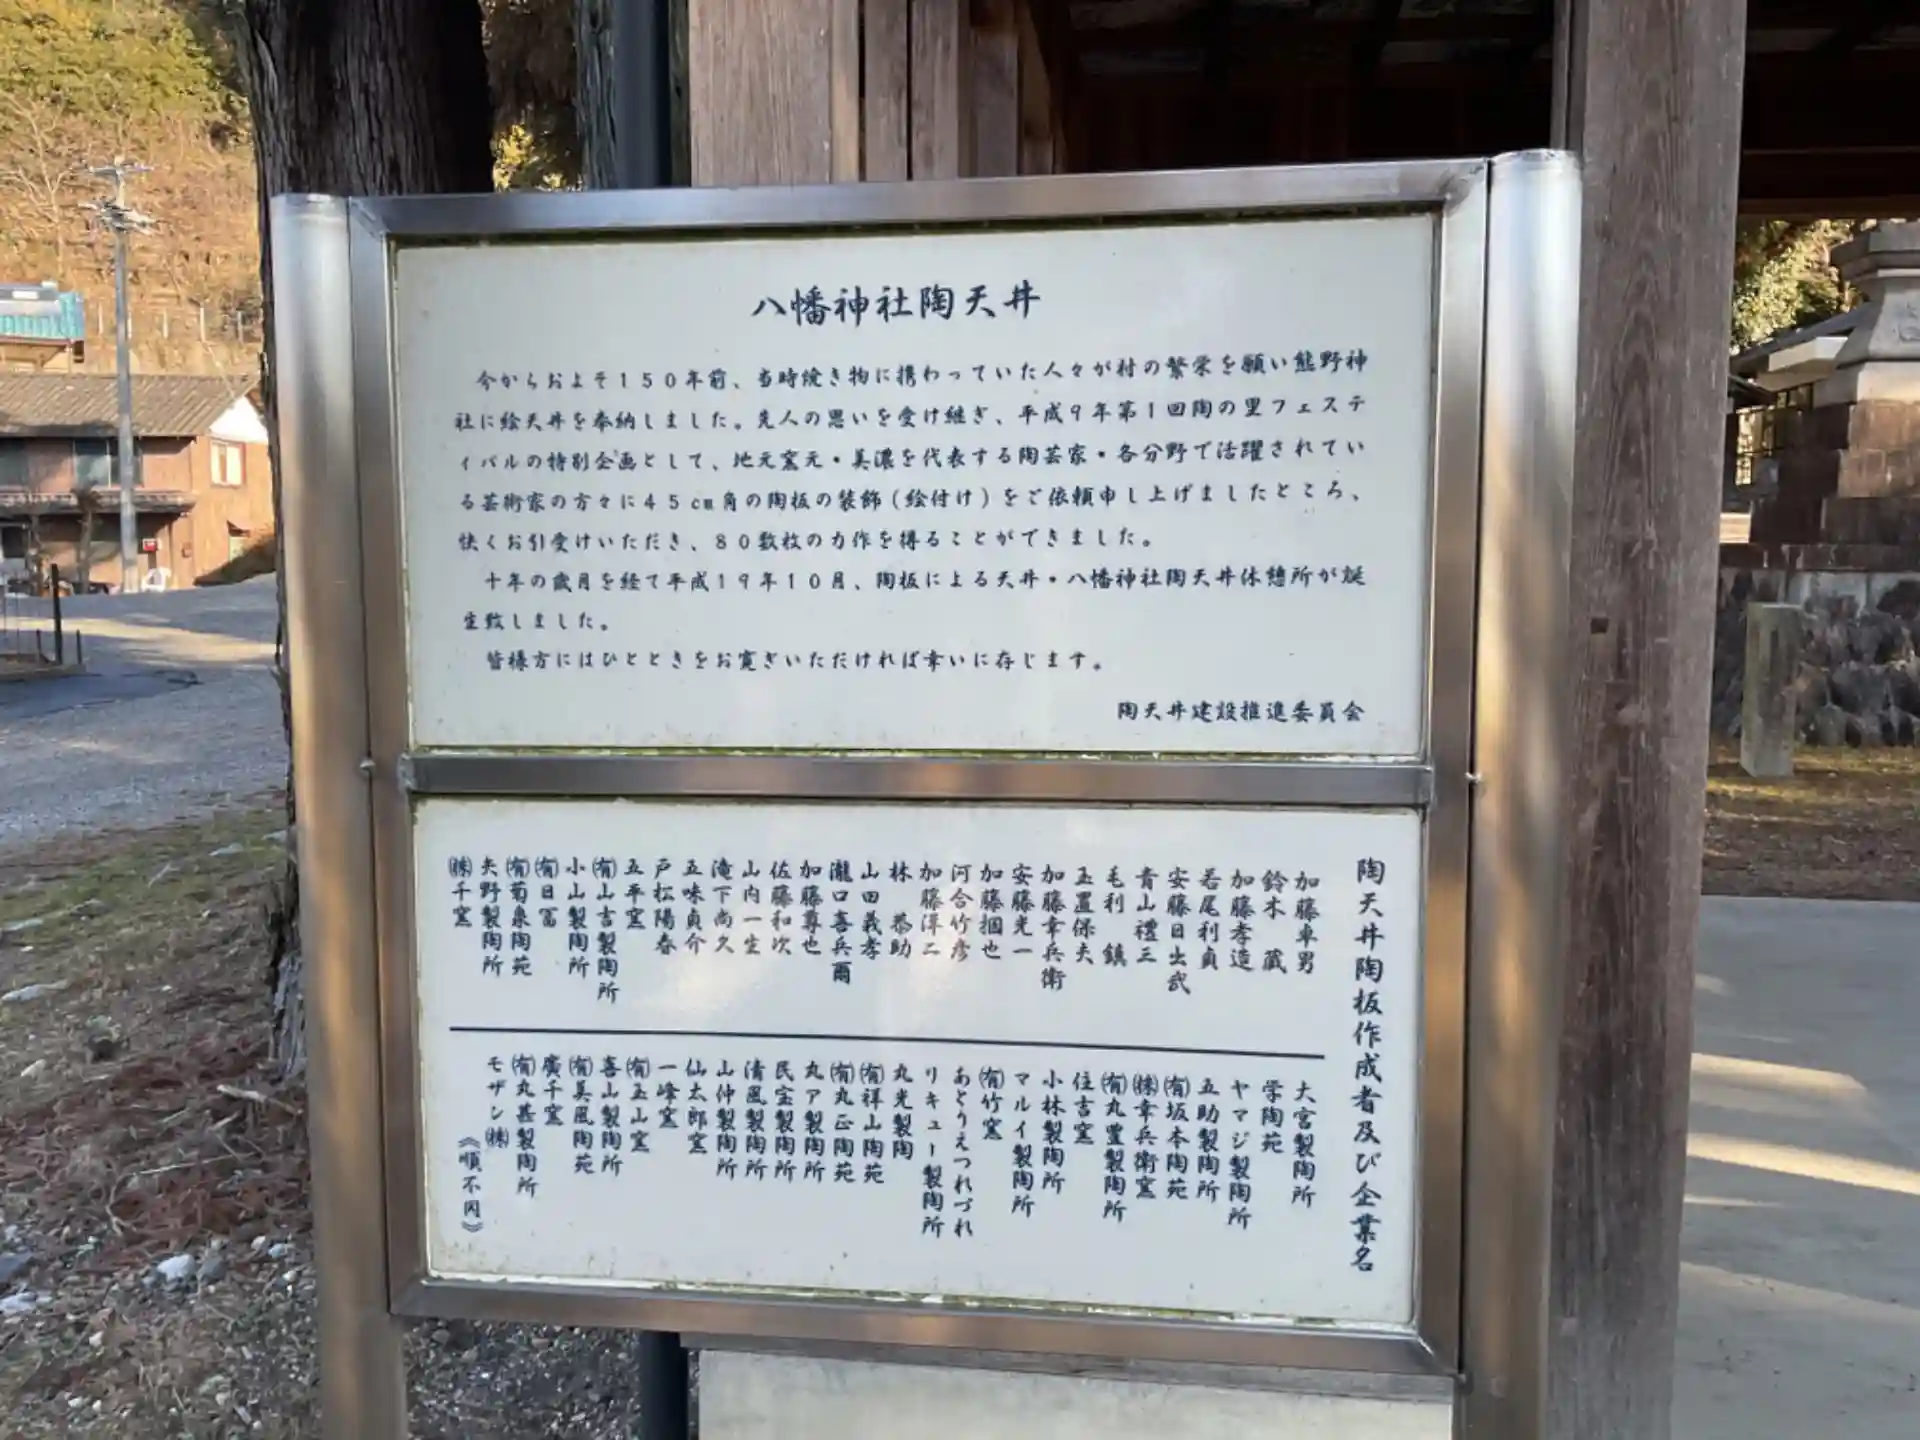 八幡神社陶天井
今からおよそ150年前、当時焼き物に携わっていた人々が村の繁栄を願い熊野神
社に絵天井を奉納しました。先人の思いを受け継ぎ、平成9年第1回陶の里フェステ
ィバルの特別企画として、地元窯元・美濃を代表する陶芸家・各分野で活躍されてい
る芸術家の方々に45cm角の陶板の装飾(絵付け)をご依頼申し上げましたところ、
快くお引受けいただき、80数枚の力作を得ることができました。
十年の歳月を経て平成19年10月、陶板による天井・八幡神社陶天井休憩所が誕
生致しました。
皆様方にはひとときをお寛ぎいただければ幸いに存じます。
陶天井建設推進委員会
陶天井陶板作成者及び企業名
加藤車男
鈴木 蔵
加藤孝造
若尾利貞
安藤日出武
青山禮三
毛利 鎮
玉置保夫
加藤幸兵衛
安藤光一
加藤摑也
河合竹彦
加藤洋二
林 恭助
山田義孝
瀧口喜兵爾
加藤尊也
佐藤和次
山内一生
滝下尚久
五味貞介
戸松陽春
五平窯
㈲山吉製陶所
小山製陶所
㈲日冨
㈲菊泉陶苑
矢野製陶所
㈱千窯
大宮製陶所
学陶苑
ヤマジ製陶所
五助製陶所
㈲坂本陶苑
㈱幸兵衛窯
㈲丸豊製陶所
住吉窯
小林製陶所
マルイ製陶所
㈲竹窯
あとりえつれづれ
リキュー製陶所
丸光製陶
㈲祥山陶苑
㈲丸正陶苑
丸ア製陶所
民宝製陶所
清風製陶所
山仲製陶所
仙太郎窯
一峰窯
㈲玉山窯
喜山製陶所
㈲美風陶苑
廣千窯
㈲丸甚製陶所
モザン㈱
《順不同》